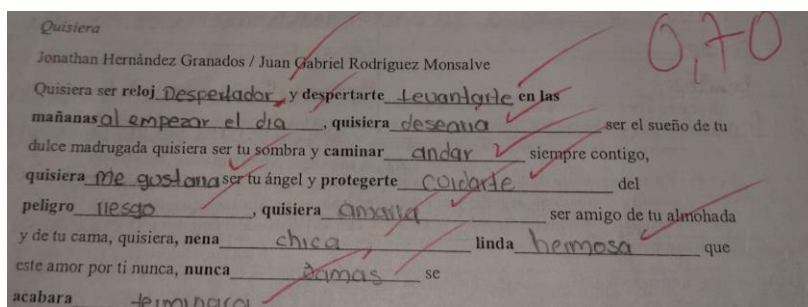 Quisiera
0,70
Jonathan Hernández Granados / Juan Gabriel Rodríguez Monsalve
Quisiera ser reloj Despertador y despertarte Levantarte en las
mañanas al empezar el dia, quisiera desearia ser el sueño de tu
dulce madrugada quisiera ser tu sombra y caminar andar siempre contigo,
quisiera me gustaria ser tu ángel y protegerte cuidarte del
peligro riesgo, quisiera amaria ser amigo de tu almohada
y de tu cama, quisiera, nena chica linda hermosa que
este amor por ti nunca, nunca Jamas se
acabara terminara